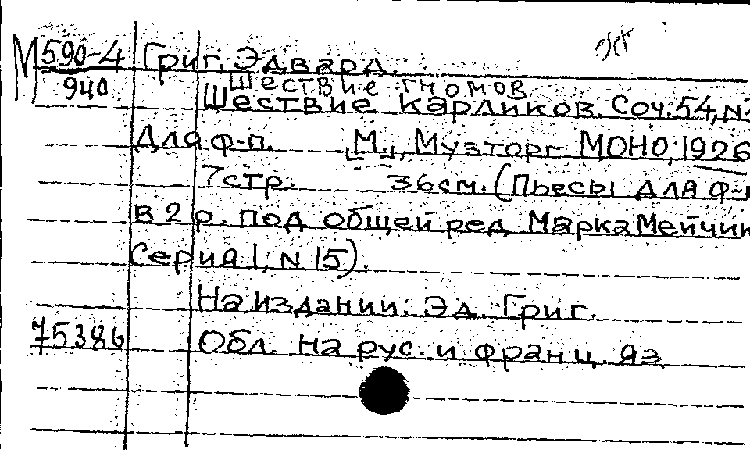 М 590-4 Григ, Эдвард.
940 Шествие гномов
Шествие карликов. Соч. 54, N
Для ф-п. [М.], Музторг МОНО, 1926
7 стр. 36 см. (Пьесы для ф-
в 2 р. под общей ред. Марка Мейчик
Серия I, N 15).
На издании: Эд. Григ.
75386 Обл. на рус. и франц. яз.